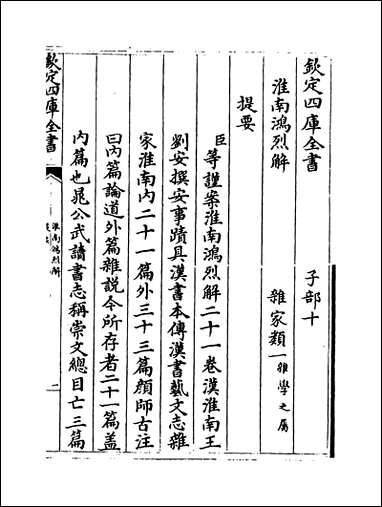 欽定四庫全書 子部十
淮南鴻烈解 雜家類一雜學之屬
提要
臣等謹案淮南鴻烈解二十一卷漢淮南王
劉安撰安事蹟具漢書本傳漢書藝文志雜
家淮南內二十一篇外三十三篇顏師古注
曰內篇論道外篇雜說今所存者二十一篇蓋
內篇也晁公武讀書志稱崇文總目亡三篇
欽定四庫全書
淮南鴻烈解
提要
一